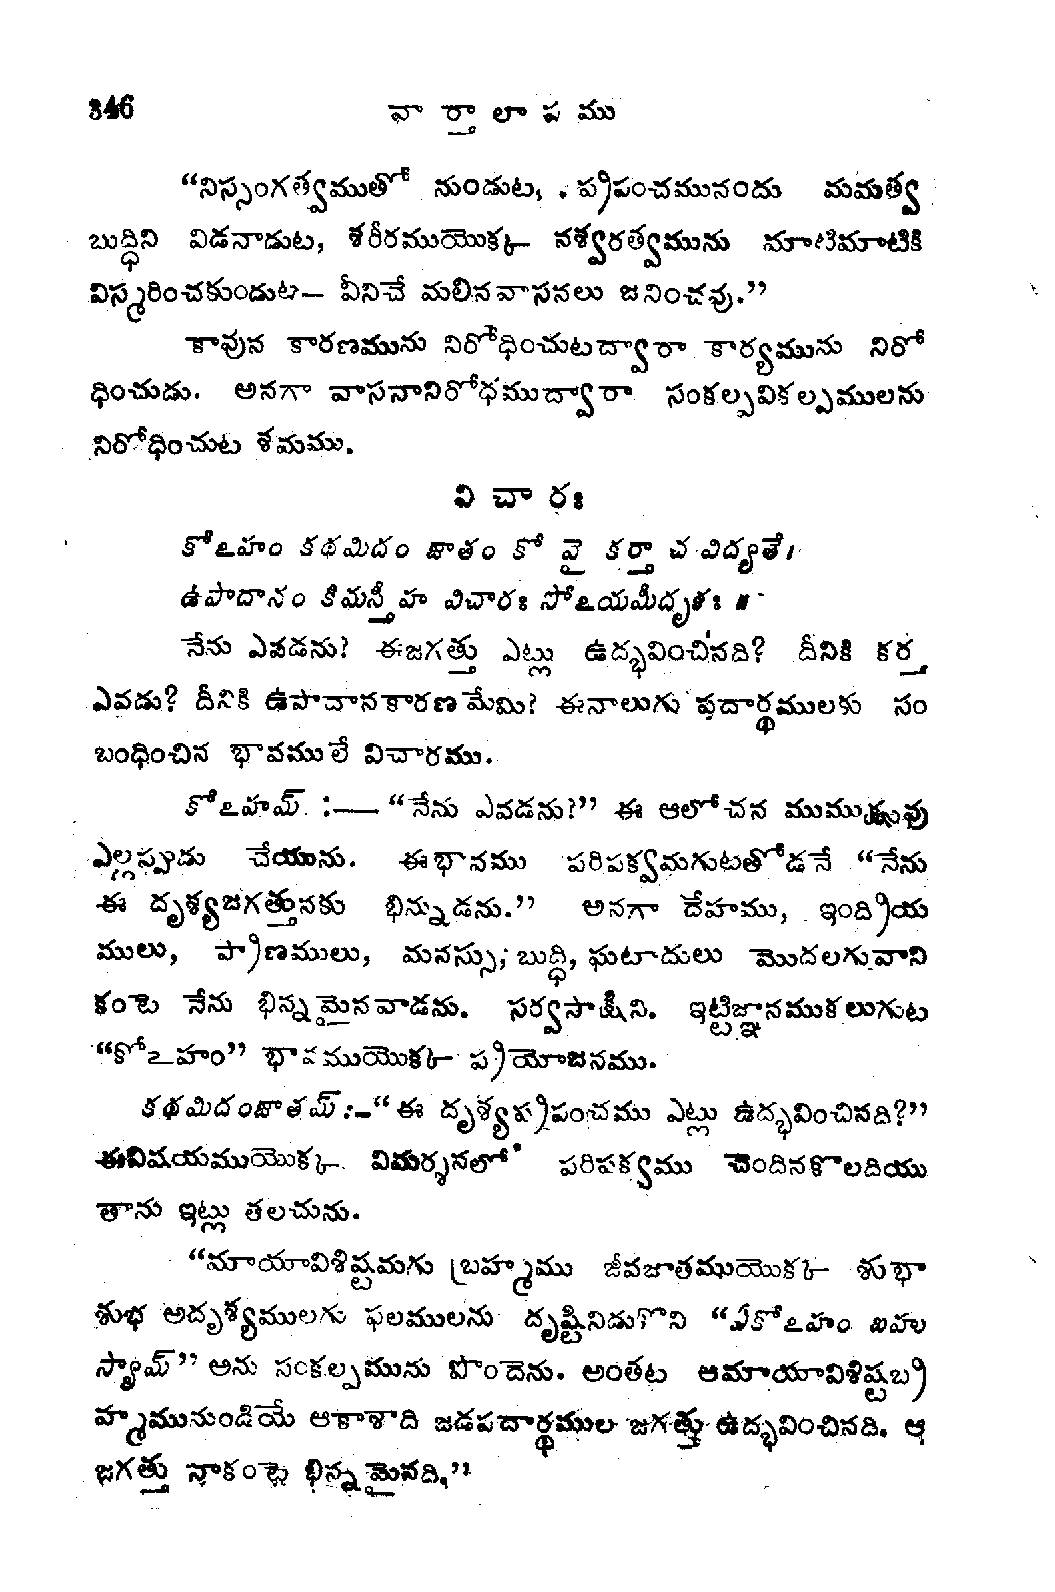 346 వా ర్తా లా ప ము
“నిస్సంగత్వముతో నుండుట, ప్రపంచమునందు మమత్వ
బుద్ధిని విడనాడుట, శరీరముయొక్క నశ్వరత్వమును మాటిమాటికి
విస్మరించకుండుట— వీనిచే మలినవాసనలు జనించవు.”
కావున కారణమును నిరోధించుటద్వారా కార్యమును నిరో
ధించుడు. అనగా వాసనానిరోధముద్వారా సంకల్పవికల్పములను
నిరోధించుట శమము.
వి చా రః
కోఽహం కథమిదం జాతం కో వై కర్తా చ విద్యతే।
ఉపాదానం కిమస్తీహ విచారః సోఽయమీదృశః ॥
నేను ఎవడను? ఈజగత్తు ఎట్లు ఉద్భవించినది? దీనికి కర్త
ఎవడు? దీనికి ఉపాదానకారణమేమి? ఈనాలుగు పదార్థములకు సం
బంధించిన భావములే విచారము.
కోఽహమ్ :— “నేను ఎవడను?” ఈ ఆలోచన ముముక్షువు
ఎల్లప్పుడు చేయును. ఈభావము పరిపక్వమగుటతోడనే “నేను
ఈ దృశ్యజగత్తునకు భిన్నుడను.” అనగా దేహము, ఇంద్రియ
ములు, ప్రాణములు, మనస్సు, బుద్ధి, ఘటాదులు మొదలగువాని
కంటె నేను భిన్నమైనవాడను. సర్వసాక్షిని. ఇట్టిజ్ఞానముకలుగుట
“కోఽహం” భావముయొక్క ప్రయోజనము.
కథమిదంజాతమ్:-“ఈ దృశ్యప్రపంచము ఎట్లు ఉద్భవించినది?”
ఈవిషయముయొక్క విమర్శనలో పరిపక్వము చెందినకొలదియు
తాను ఇట్లు తలచును.
“మాయావిశిష్టమగు బ్రహ్మము జీవజాతముయొక్క శుభా
శుభ అదృశ్యములగు ఫలములను దృష్టినిడుగొని “ఏకోఽహం బహు
స్యామ్” అను సంకల్పమును పొందెను. అంతట ఆమాయావిశిష్టబ్ర
హ్మమునుండియే ఆకాశాది జడపదార్థముల జగత్తు ఉద్భవించినది. ఆ
జగత్తు నాకంటె భిన్నమైనది.”